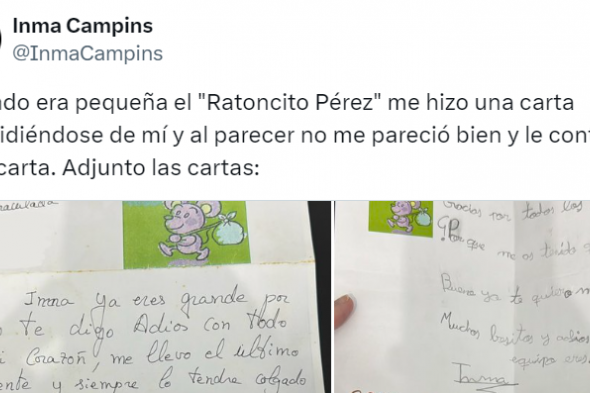 Inma Campins
@InmaCampins
ndo era pequeña el "Ratoncito Pérez" me hizo una carta
idiéndose de mí y al parecer no me pareció bien y le con
carta. Adjunto las cartas:
Inma ya eres grande por
te digo Adios con todo
i corazoñ, me llevo el ultimo
ente y siempre lo tendre colgado
Gracias por todos los
que me os
Bueno ya te quiero m
Muchos besitos y adios
equipo eres
Inma